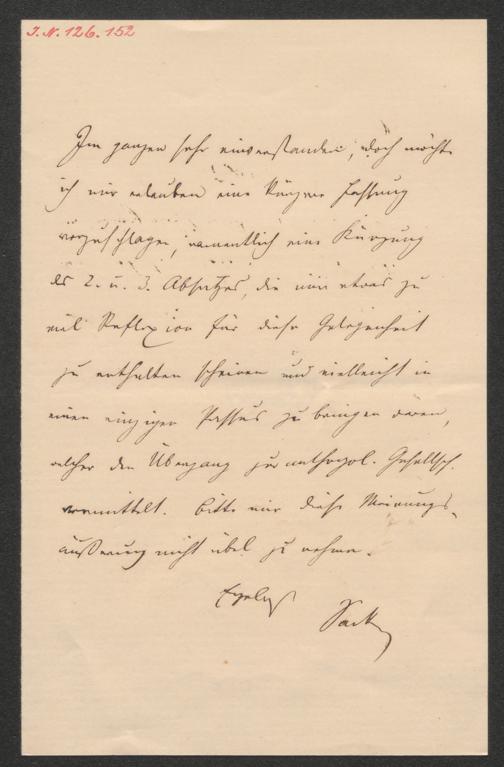 J.N. 126.152
Im ganzen sehr einverstanden, doch möchte
ich mir erlauben eine kürzere Fassung
vorzuschlagen, namentlich eine Kürzung
des 2. u. 3. Absatzes, die mir etwas zu
viel Reflexion für diese Gelegenheit
zu enthalten scheinen und vielleicht in
einen einzigen Passus zu bringen wären,
welcher den Übergang zur anthropol. Gesellsch.
vermittelt. Bitte mir diese Meinungs-
äußerung nicht übel zu nehmen.